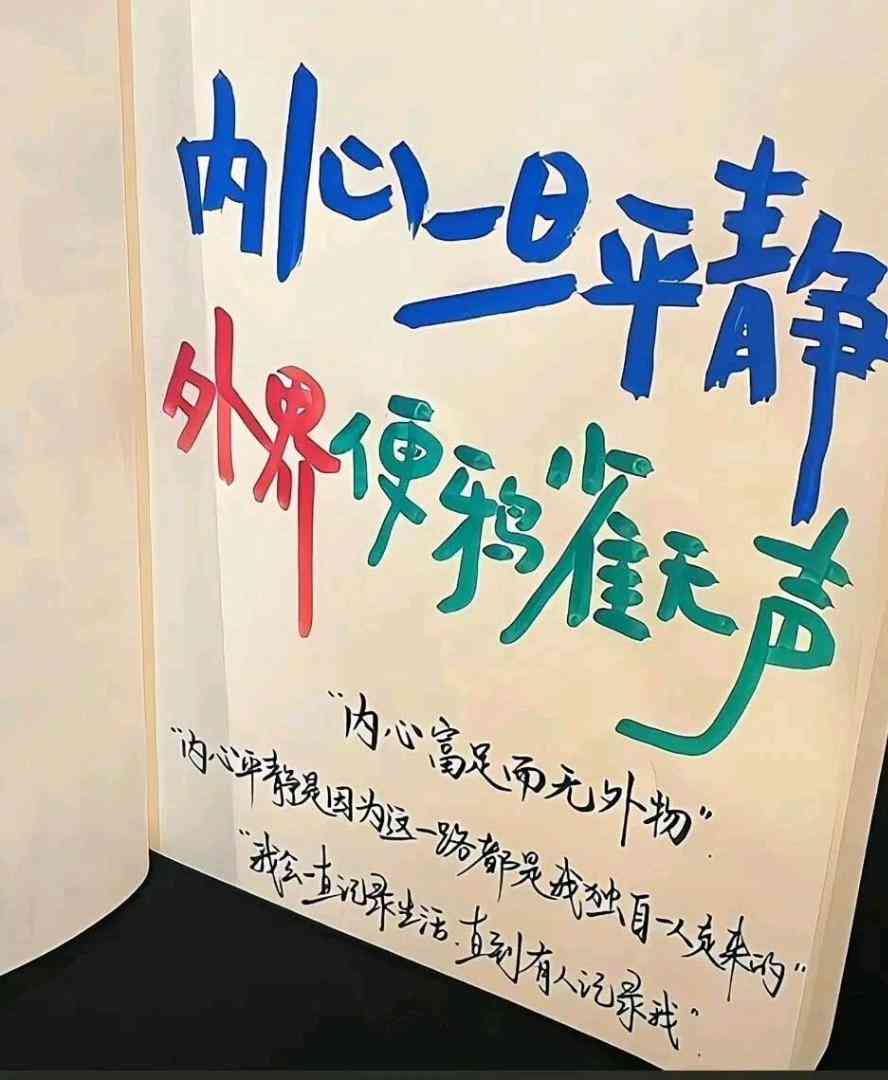 内心一旦平静
外界便鸦雀无声
"内心富足而无外物"
"内心平静是因为这一路都是我独自一人走来的"
"我会一直记录生活.直到有人记录我"